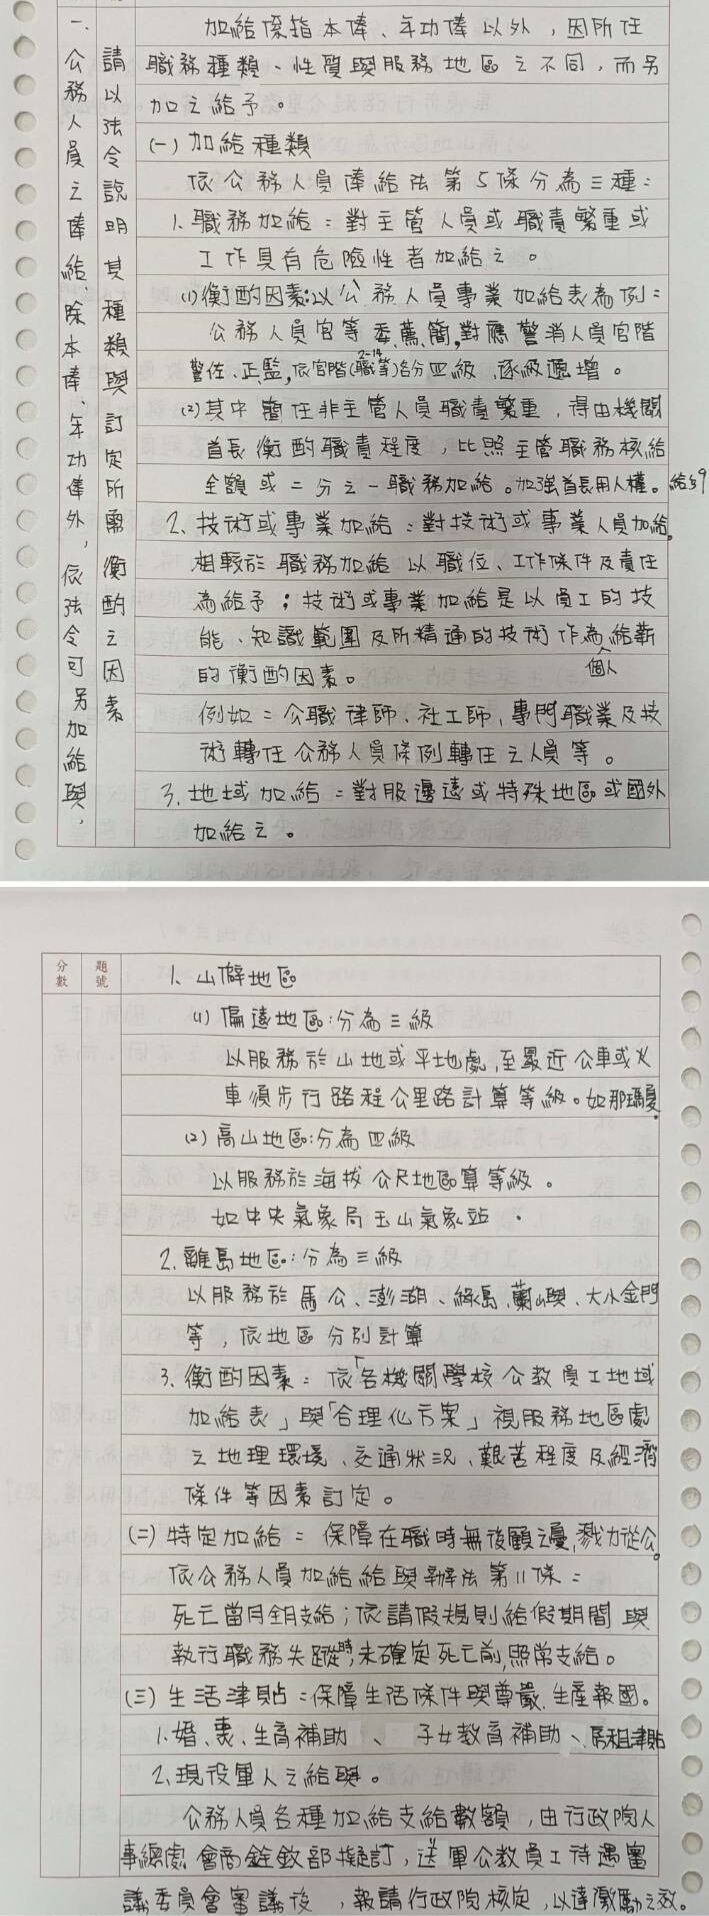 一、公務人員之俸給，除本俸、年功俸外，依法令可另加給與，
請以法令說明其種類與訂定所需衡酌之因素
加給係指本俸、年功俸以外，因所任
職務種類、性質與服務地區之不同，而另
加之給予。
(一)加給種類
依公務人員俸給法第5條分為三種：
1.職務加給：對主管人員或職責繁重或
工作具有危險性者加給之。
(1)衡酌因素:以公務人員專業加給表為例：
公務人員官等委、薦、簡,對應警消人員官階
2-14
警佐、正、監,依官階(職等)各分四級，逐級遞增。
(2)其中簡任非主管人員職責繁重，得由機關
首長衡酌職責程度，比照主管職務核給
全額或二分之一職務加給。加強首長用人權。給§9
2、技術或專業加給：對技術或專業人員加給。
相較於職務加給以職位、工作條件及責任
為給予；技術或專業加給是以員工的技
能、知識範圍及所精通的技術作為給薪
個人
的衡酌因素。
例如：公職律師、社工師、專門職業及技
術轉任公務人員條例轉任之人員等。
3、地域加給：對服邊遠或特殊地區或國外
加給之。
分數
題號
1、山僻地區
(1)偏遠地區:分為三級
以服務於山地或平地處,至最近公車或火
車須步行路程公里路計算等級。如那瑪夏。
(2)高山地區:分為四級
以服務於海拔公尺地區算等級。
如中央氣象局玉山氣象站。
2.離島地區:分為三級
以服務於馬公、澎湖、綠島、蘭嶼、大小金門
等，依地區分別計算
3、衡酌因素：依「各機關學校公教員工地域
加給表」與「合理化方案」視服務地區處
之地理環境、交通狀況、艱苦程度及經濟
條件等因素訂定。
(二)特定加給：保障在職時無後顧之憂,戮力從公。
依公務人員加給給與辦法第11條：
死亡當月全月支給；依請假規則給假期間與
執行職務失蹤時,未確定死亡前,照常支給。
(三)生活津貼：保障生活條件與尊嚴,生產報國。
1.婚、喪、生育補助、子女教育補助、房租津貼
2、現役軍人之給與。
公務人員各種加給支給數額，由行政院人
事總處會商銓敘部擬訂，送軍公教員工待遇審
議委員會審議後，報請行政院核定，以達激勵之效。